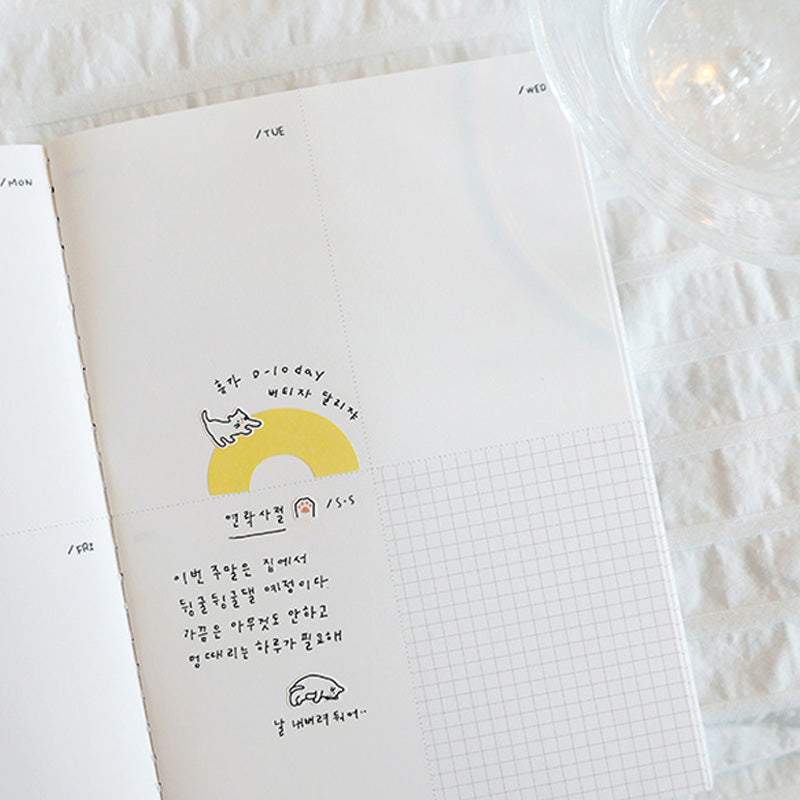 /MON
/TUE
/WED
휴가 D-10day
버티자 달리자
/FRI
연락사절
/S.S
이번 주말은 집에서
뒹굴뒹굴댈 예정이다.
가끔은 아무것도 안하고
멍때리는 하루가 필요해
날 내버려 둬어..